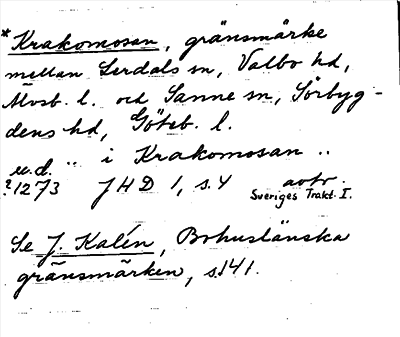 * Krakomosan, gränsmärke
mellan Lerdals sn, Valbo hd,
Älvsb. l. och Sanne sn, Sörbyg-
dens hd, Göteb. l.
u.d. " i Krakomosan ..
? 1273 JHD 1, s. 4 avtr.
Sveriges Trakt. I.
Se J. Kalén, Bohuslänska
gränsmärken, s. 141.